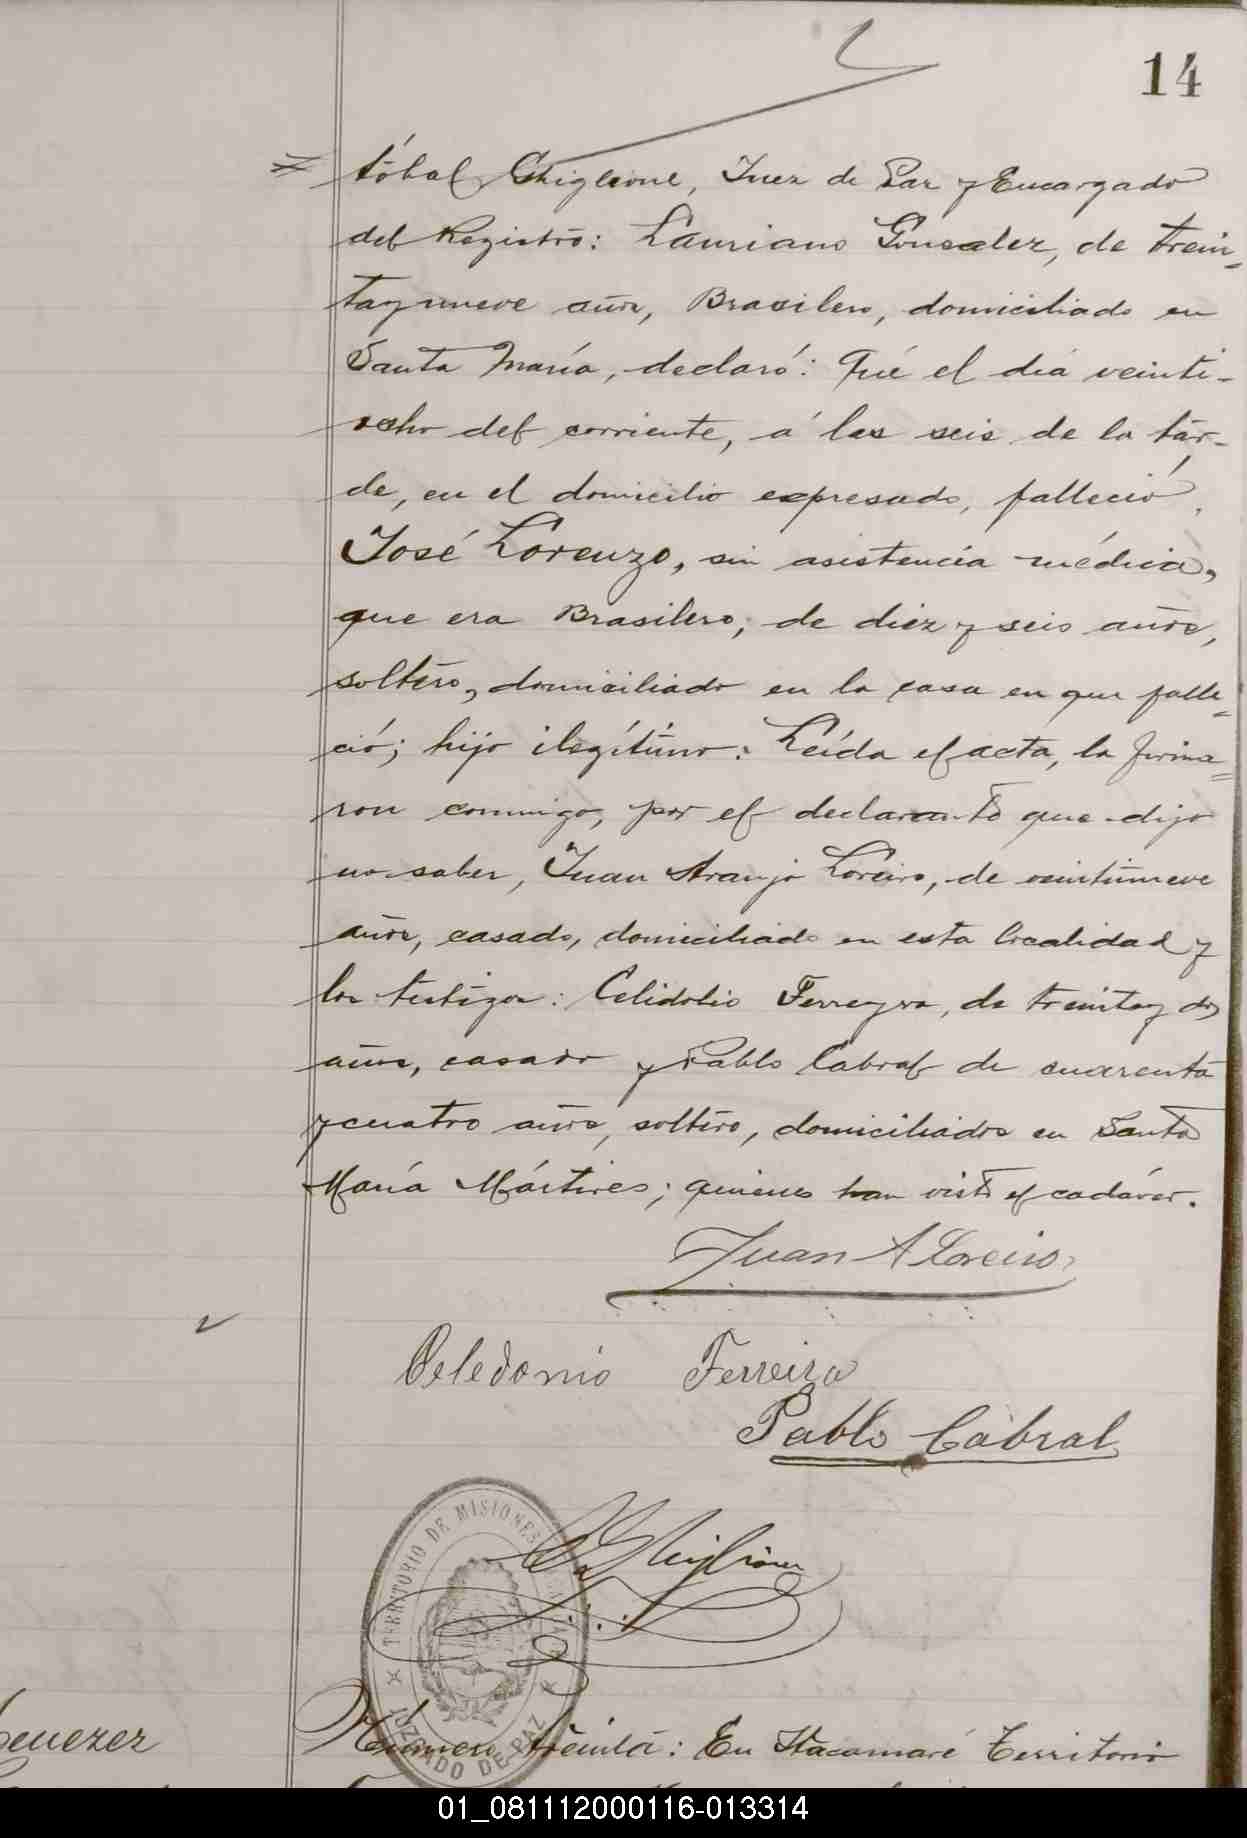 14
tóbal Ghiglione, Juez de Paz y Encargado
del Registro: Lauriano Gonzalez, de trein-
tay nueve años, Brasilero, domiciliado en
Santa María, declaró: Qué el día veinti-
ocho del corriente, á las seis de la tar-
de, en el domicilio expresado, falleció,
José Lorenzo, sin asistencia médica,
que era Brasilero, de diez y seis años,
soltero, domiciliado en la casa en que falle-
ció; hijo ilegítimo: Leída el acta, la firma-
ron conmigo, por el declarante que dijo
no saber, Juan Araujo Loreiro, de veintinueve
años, casado, domiciliado en esta localidad y
los testigos: Celidolio Ferreyra, de treintay dos
años, casado y Pablo Cabral de cuarenta
y cuatro años, soltero, domiciliados en Santa
María Mártires; quienes han visto el cadáver.
Juan A Loreiro
Celedonio Ferreira
Pablo Cabral
Ghiglione
TERRITORIO DE MISIONES
JUZGADO DE PAZ
benezer
Número treinta: En Itacamaré Territorio
01_081112000116-013314